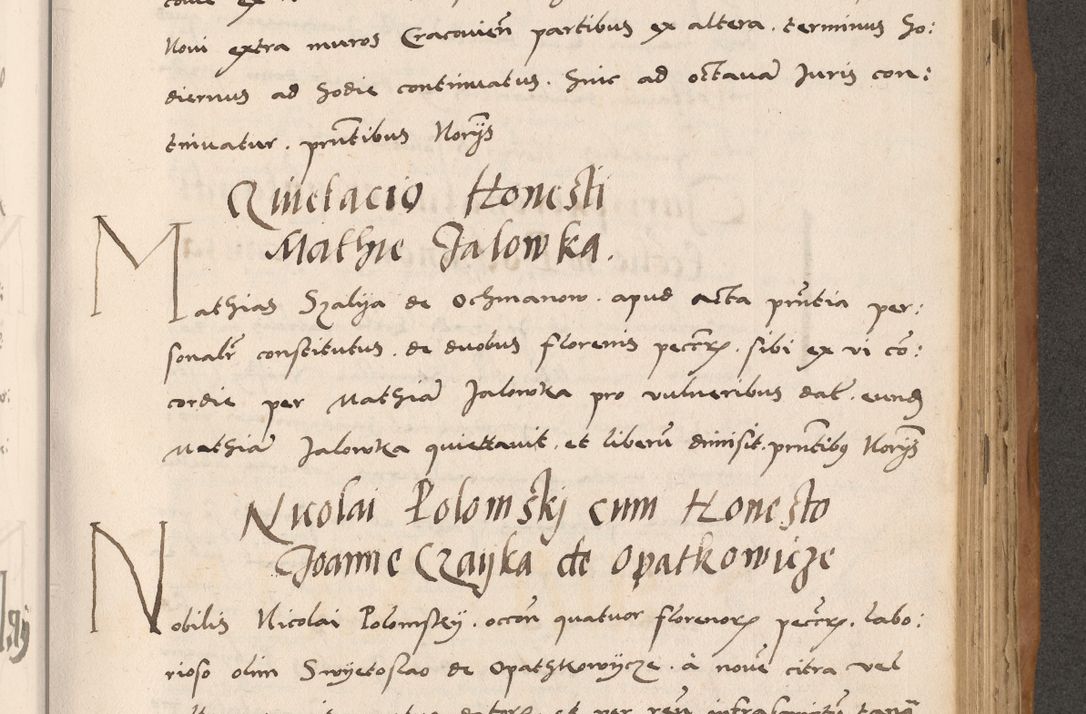 Novi extra muros Cracovien̄ partibus ex altera . terminus ho:
diernus ad hodie continuatus . hinc ad octavā Juris con:
tinuatur . prn̄tibus Norijs
Quietacio Honesti
Mathie Jalowka.
Mathias Szalija de Ochmanow . apud acta prn̄tia per:
sonalr̄ constitutus . de duobus florenis peccr̄ . sibi ex vi cō:
cordie per Mathiā Jalowka pro vulneribus dat̄ . eund
Mathiā Jalowka quiettavit . et liberū dimisit . prn̄tibus Norijs
Nicolai Polomskj cum Honesto
Joanne Czayka de Opatkowicze
Nobilis Nicolai Polomskij . occōn quatuor florenor peccr̄ . labo:
rioso olim Swijetoslao de Opathkowijcze . a nove citra vel